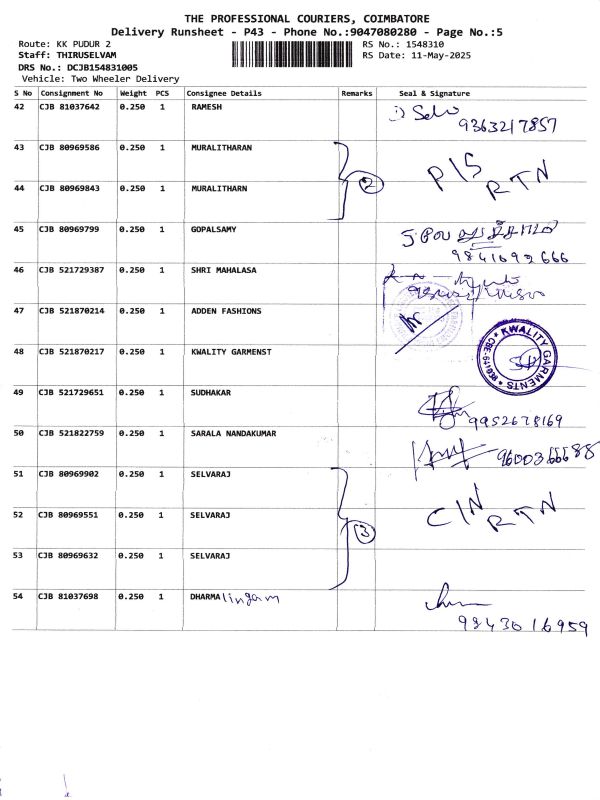 THE PROFESSIONAL COURIERS, COIMBATORE
Delivery Runsheet - P43 - Phone No.:9047080280 - Page No.:5
Route: KK PUDUR 2 RS No.: 1548310
Staff: THIRUSELVAM RS Date: 11-May-2025
DRS No.: DCJB154831005
Vehicle: Two Wheeler Delivery
S No Consignment No Weight PCS Consignee Details Remarks Seal & Signature
42 CJB 81037642 0.250 1 RAMESH
9363217857
43 CJB 80969586 0.250 1 MURALITHARAN
2 P/S RTN
44 CJB 80969843 0.250 1 MURALITHARN
45 CJB 80969799 0.250 1 GOPALSAMY
9841692666
46 CJB 521729387 0.250 1 SHRI MAHALASA
47 CJB 521870214 0.250 1 ADDEN FASHIONS
48 CJB 521870217 0.250 1 KWALITY GARMENST
KWALITY GARMENTS
49 CJB 521729651 0.250 1 SUDHAKAR
9952678169
50 CJB 521822759 0.250 1 SARALA NANDAKUMAR
51 CJB 80969902 0.250 1 SELVARAJ
52 CJB 80969551 0.250 1 SELVARAJ
3 C/N RTN
53 CJB 80969632 0.250 1 SELVARAJ
54 CJB 81037698 0.250 1 DHARMAlingam
9843016959